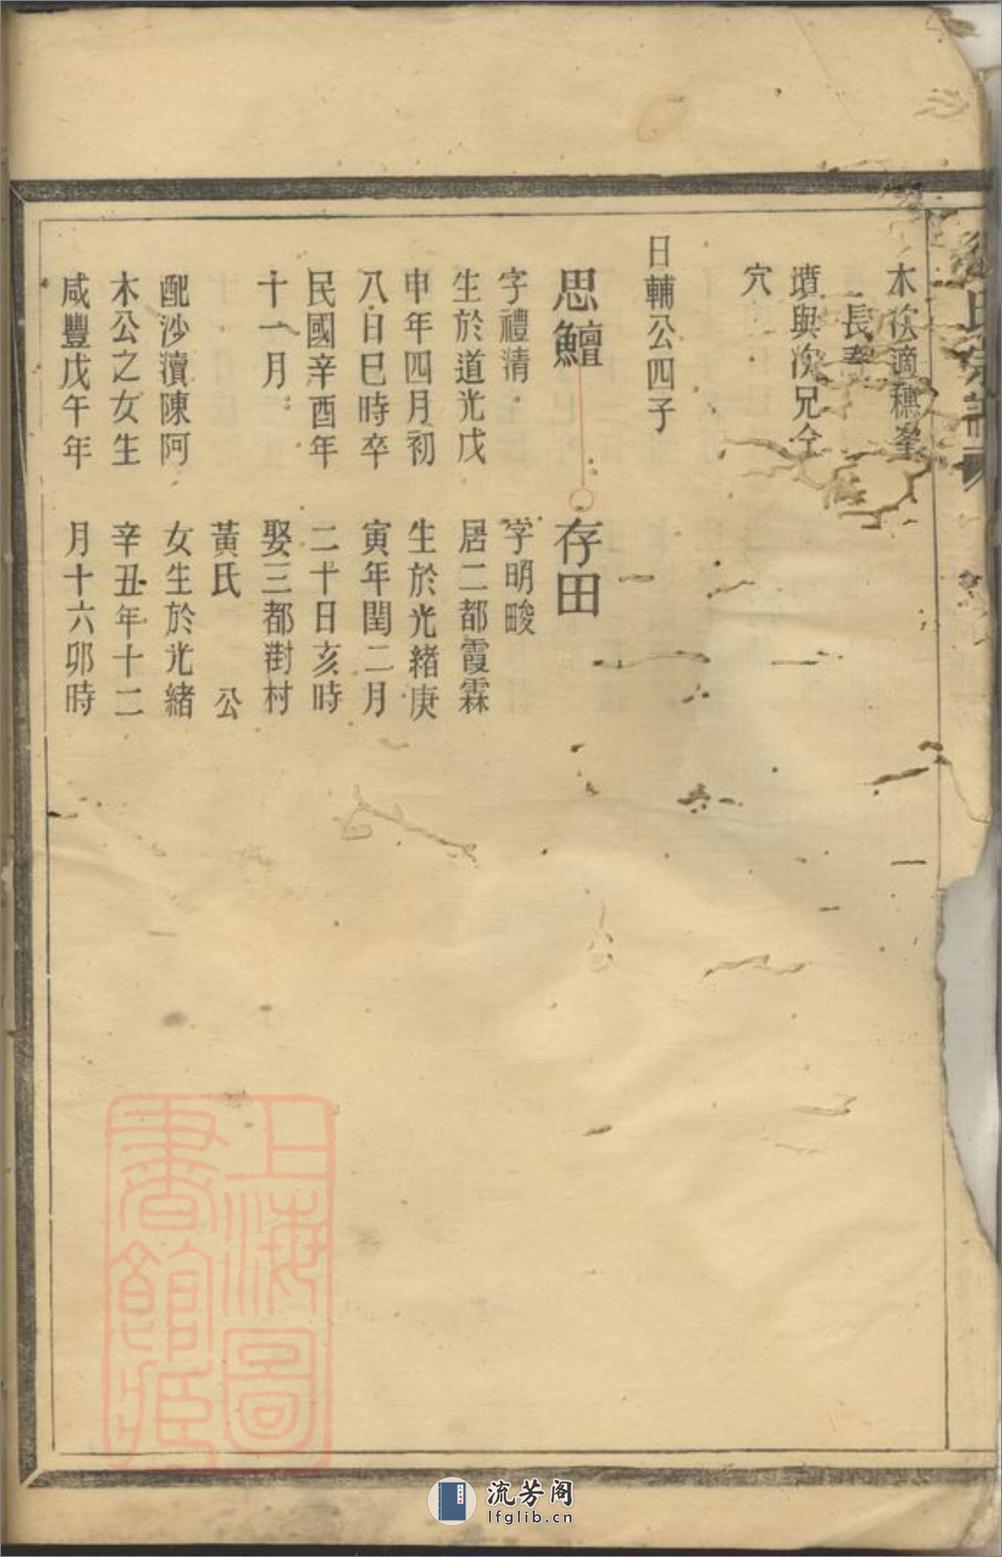 氏宗譜
木公適穗峯
長
墳與次兄仝
穴
日輔公四子
思鱣
字禮清
生於道光戊
申年四月初
八日巳時卒
民國辛酉年
十一月
配沙瀆陳阿
木公之女生
咸豐戊午年
存田
字明畯
居二都霞霖
生於光緒庚
寅年閏二月
二十日亥時
娶三都對村
黃氏 公
女生於光緒
辛丑年十二
月十六卯時
上海圖
書館藏
流芳阁
lfglib.cn